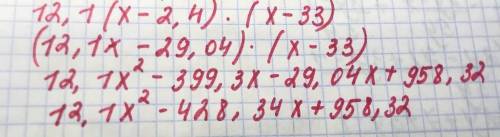 12,1(x-2,4)·(x-33)
(12,1x-29,04)·(x-33)
12,1x²-399,3x-29,04x+958,32
12,1x²-428,34x+958,32